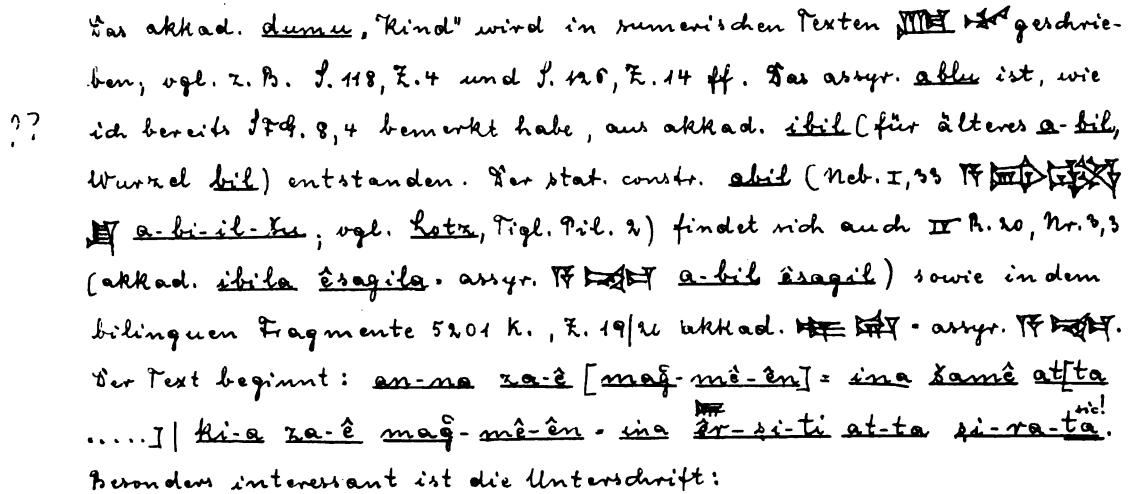 Das akkad. dumu „Kind" wird in sumerischen Texten geschrie-
ben; vgl. z. B. S. 118, Z. 4 und S. 126, Z. 14 ff. Das assyr. ablu ist, wie
?? ich bereits SFG. 8, 4 bemerkt habe, aus akkad. ibil (für älteres a-bil,
Wurzel bil) entstanden. Der stat. constr. abil (Neb. I, 33
a-bi-il-šu; vgl. Lotz, Tigl. Pil. 2) findet sich auch IV R. 20, Nr. 3, 3
(akkad. ibila êsagila = assyr. a-bil êsagil) sowie in dem
bilinguen Fragmente 5201 K., Z. 19/21 akkad. = assyr.
Der Text beginnt: an-na za-ê [maĝ-mê-ên] = ina šamê at[ta
.....] | ki-a za-ê maĝ-mê-ên = ina êr-ṣi-ti at-ta ṣi-ra-ta sic!.
Besonders interessant ist die Unterschrift: